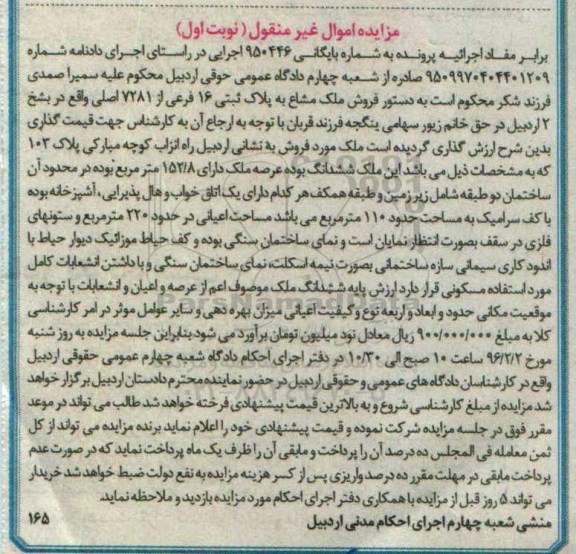 مزایده اموال غیر منقول (نوبت اول)
برابر مفاد اجرائیه پرونده به شماره بایگانی ۹۵۰۴۴۶ اجرایی در راستای اجرای دادنامه شماره
۹۵۰۹۹۷۰۴۰۴۴۰۱۲۰۹ صادره از شعبه چهارم دادگاه عمومی حوقی اردبیل محکوم علیه سمیرا صمدی
فرزند شکر محکوم است به دستور فروش ملک مشاع به پلاک ثبتی ۱۶ فرعی از ۷۲۸۱ اصلی واقع در بخش
۲ اردبیل در حق خانم زیور سهامی ینگجه فرزند قربان با توجه به ارجاع آن به کارشناس جهت قیمت گذاری
بدین شرح ارزش گذاری گردیده است ملک مورد فروش به نشانی اردبیل راه انزاب کوچه مبارکی پلاک ۱۰۳
که به مشخصات ذیل می باشد این ملک ششدانگ بوده عرصه ملک دارای ۱۵۲/۸ متر مربع بوده در محدود آن
ساختمان دو طبقه شامل زیر زمین و طبقه همکف هر کدام دارای یک اتاق خواب و هال پذیرایی، آشپزخانه بوده
با کف سرامیک به مساحت حدود ۱۱۰ مترمربع می باشد مساحت اعیانی در حدود ۲۲۰ مترمربع و ستونهای
فلزی در سقف بصورت انتظار نمایان است و نمای ساختمان سنگی بوده و کف حیاط موزائیک دیوار حیاط با
اندود کاری سیمانی سازه ساختمانی بصورت نیمه اسکلت، نمای ساختمان سنگی و با داشتن انشعابات کامل
مورد استفاده مسکونی قرار دارد ارزش پایه ششدانگ ملک موصوف اعم از عرصه و اعیان و انشعابات با توجه به
موقعیت مکانی حدود و ابعاد و اربعه نوع و کیفیت اعیانی میزان بهره دهی و سایر عوامل موثر در امر کارشناسی
کلا به مبلغ ۹۰۰/۰۰۰/۰۰۰ ریال معادل نود میلیون تومان برآورد می شود بنابراین جلسه مزایده به روز شنبه
مورخ ۹۶/۲/۲ ساعت ۱۰ صبح الی ۱۰/۳۰ در دفتر اجرای احکام دادگاه شعبه چهارم عمومی حقوقی اردبیل
واقع در کارشناسان دادگاه های عمومی و حقوقی اردبیل در حضور نماینده محترم دادستان اردبیل برگزار خواهد
شد مزایده از مبلغ کارشناسی شروع و به بالاترین قیمت پیشنهادی فرخته خواهد شد طالب می تواند در موعد
مقرر فوق در جلسه مزایده شرکت نموده و قیمت پیشنهادی خود را اعلام نماید برنده مزایده می تواند از کل
ثمن معامله فی المجلس ده درصد آن را پرداخت و مابقی آن را ظرف یک ماه پرداخت نماید که در صورت عدم
پرداخت مابقی در مهلت مقرر ده درصد واریزی پس از کسر هزینه مزایده به نفع دولت ضبط خواهد شد خریدار
می تواند ۵ روز قبل از مزایده با همکاری دفتر اجرای احکام مورد مزایده بازدید و ملاحظه نماید.
منشی شعبه چهارم اجرای احکام مدنی اردبیل
۱۶۵
ParsNamadData